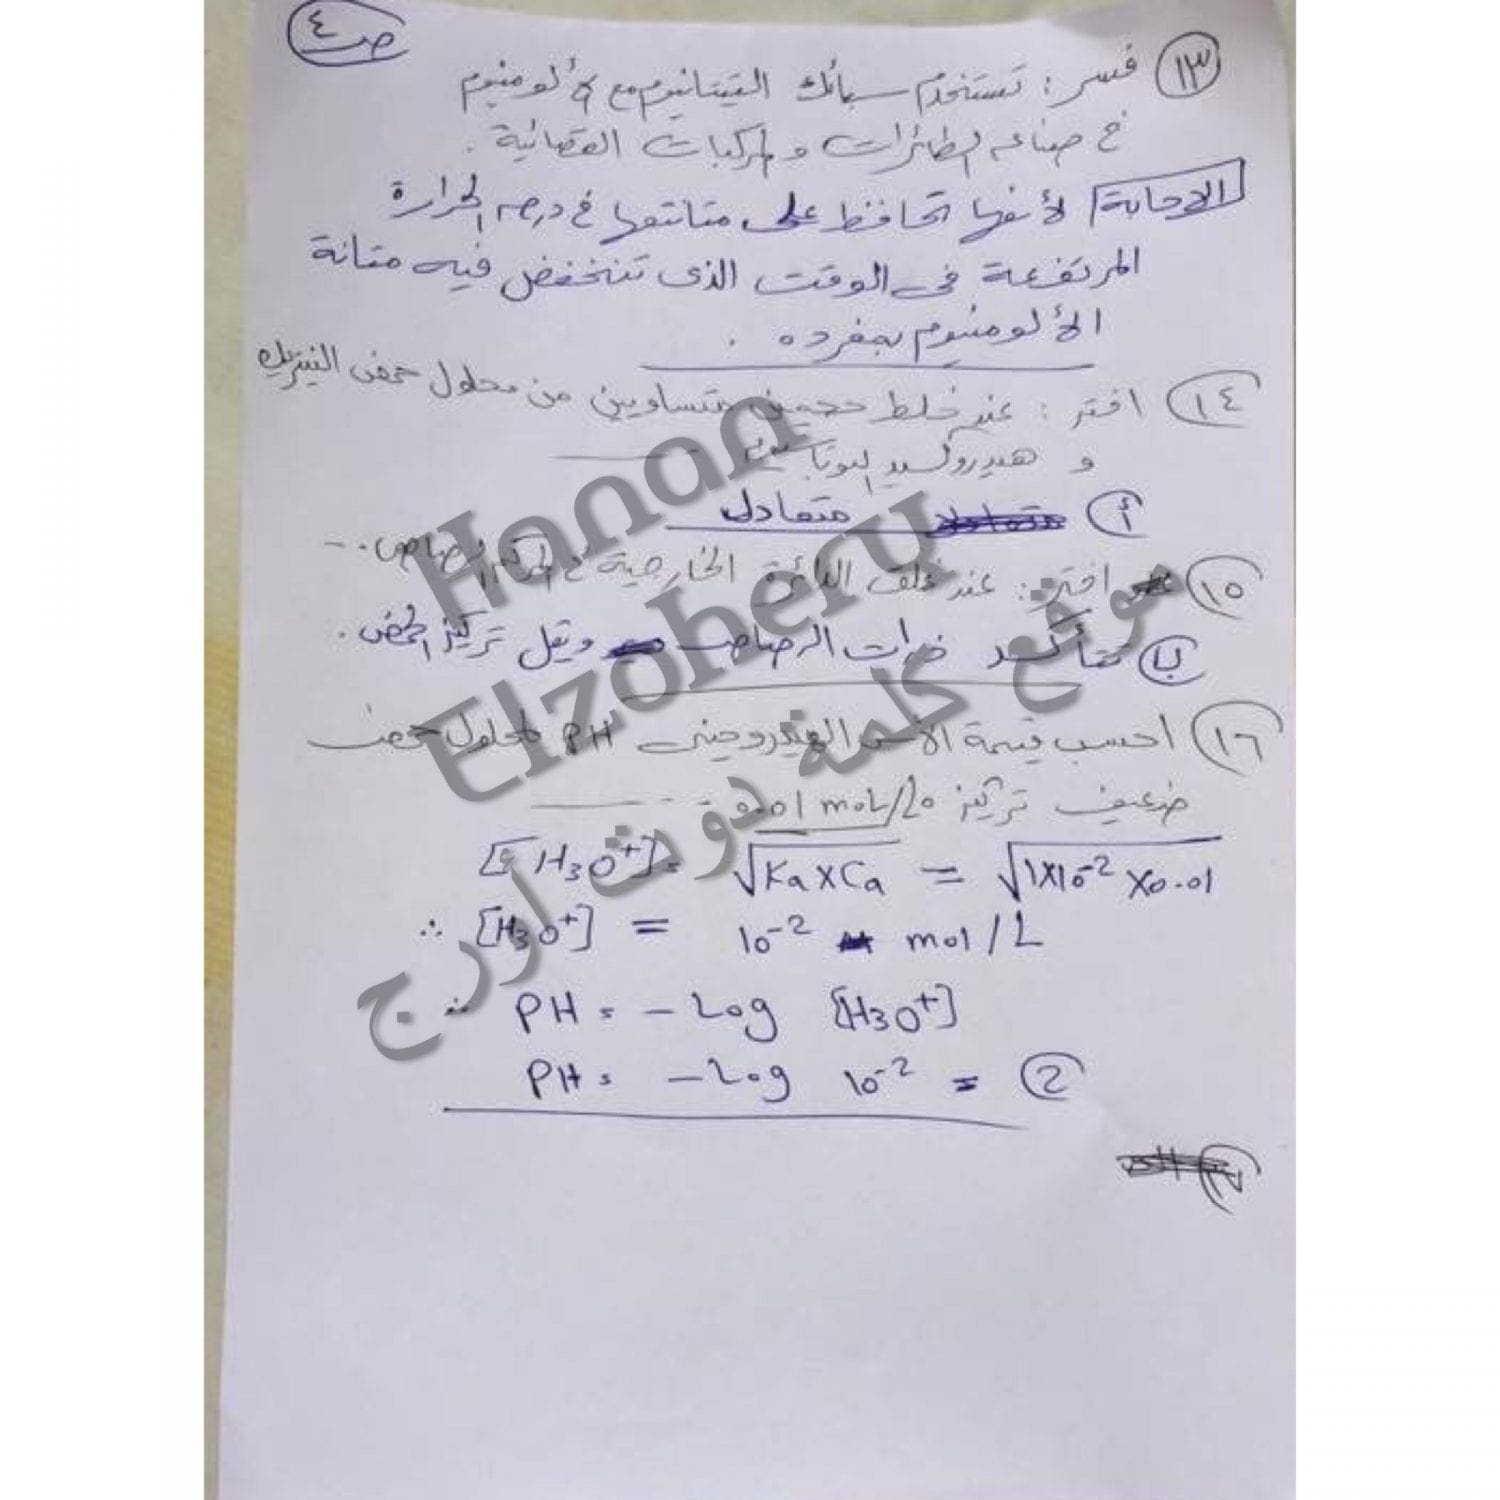 ص٤
١٣ فسر : تستخدم سبائك التيتانيوم مع الألومنيوم
في صناعه الطائرات والمركبات الفضائية .
الاجابة / لأنها تحافظ على متانتها في درجه الحرارة
المرتفعة فى الوقت الذى تنخفض فيه متانة
الألومنيوم بمفرده .
١٤ اختر : عند خلط حجمين متساويين من محلول حمض النيتريك
و هيدروكسيد البوتاسيوم
أ متعادل
١٥ اختر : عند غلق الدائرة الخارجية في المركم الرصاص . --
ب تتأكسد ذرات الرصاص ويقل تركيز الحمض .
١٦ احسب قيمة الأس الهيدروجينى PH لمحلول حمض
ضعيف تركيزه 0.01 mol/L
[H3O+] = √Ka X Ca = √1X10-2 X0.01
∴ [H3O+] = 10-2 mol/L
∴ PH = - Log [H3O+]
PH = - Log 10-2 = 2
Hanan
Elzohery
موقع كلمة دوت اورج